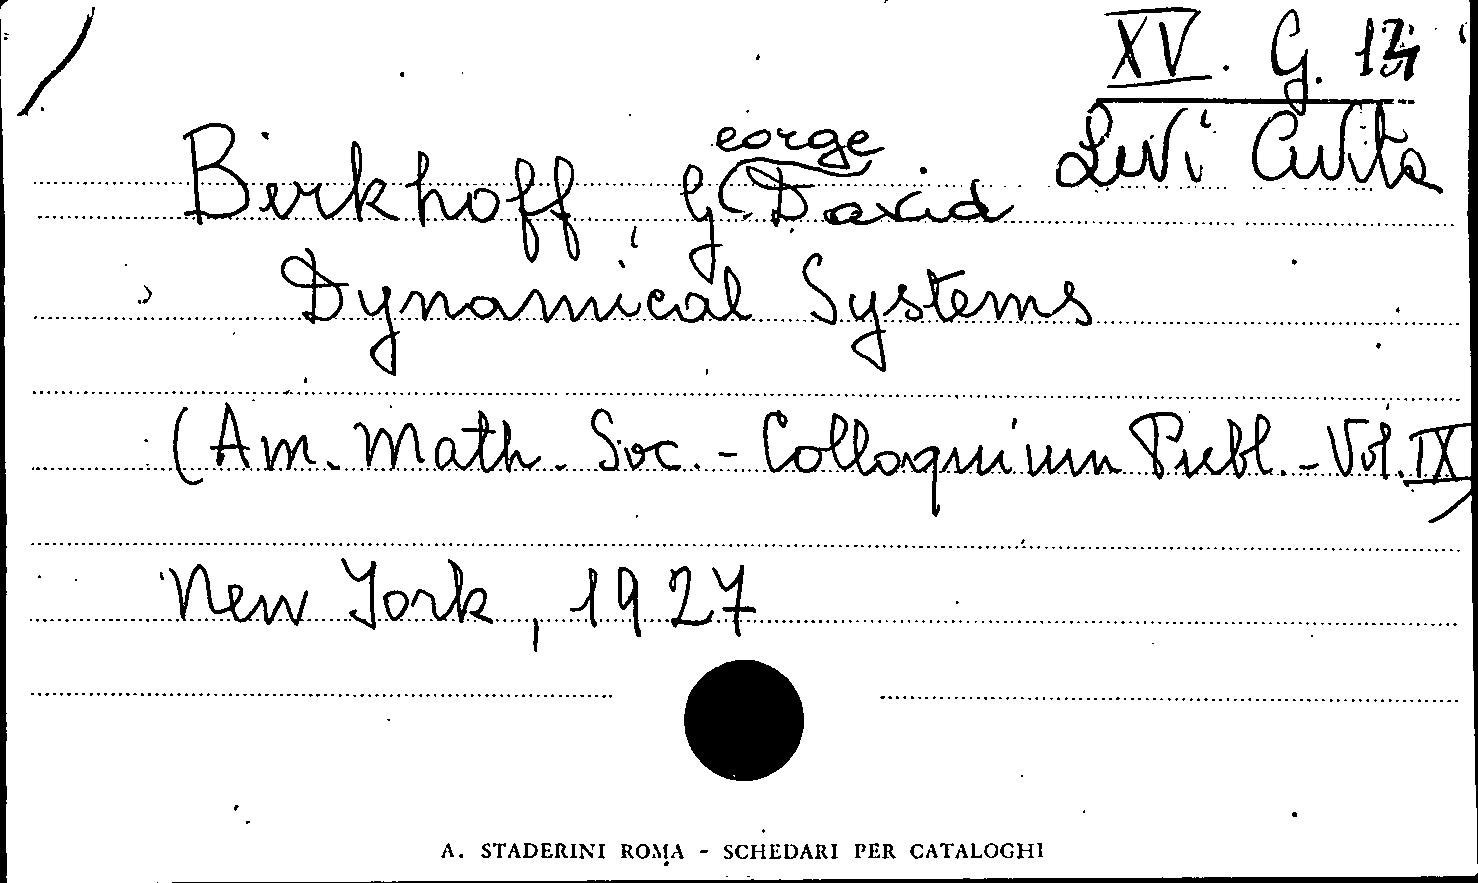 XV. G. 14
Levi Civita
Birkhoff George David
Dynamical Systems
(Am. Math. Soc. - Colloquium Publ. - Vol. IX)
New York, 1927
A. STADERINI ROMA - SCHEDARI PER CATALOGHI